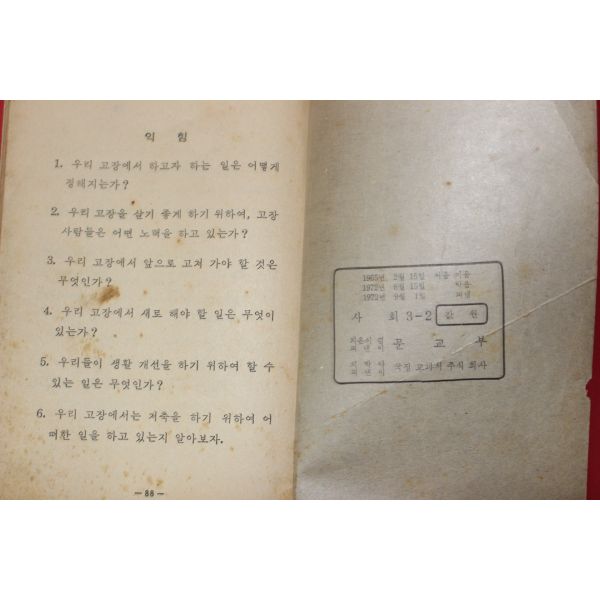 익 힘
1. 우리 고장에서 하고자 하는 일은 어떻게
정해지는가?
2. 우리 고장을 살기 좋게 하기 위하여, 고장
사람들은 어떤 노력을 하고 있는가?
3. 우리 고장에서 앞으로 고쳐 가야 할 것은
무엇인가?
4. 우리 고장에서 새로 해야 할 일은 무엇이
있는가?
5. 우리들이 생활 개선을 하기 위하여 할 수
있는 일은 무엇인가?
6. 우리 고장에서는 저축을 하기 위하여 어
떠한 일을 하고 있는지 알아보자.
— 86 —
1965년 2월 15일 처음 지음
1972년 8월 15일 박음
1972년 9월 1일 펴냄
사 회 3-2 값 원
문 교 부
국정 교과서 주식 회사